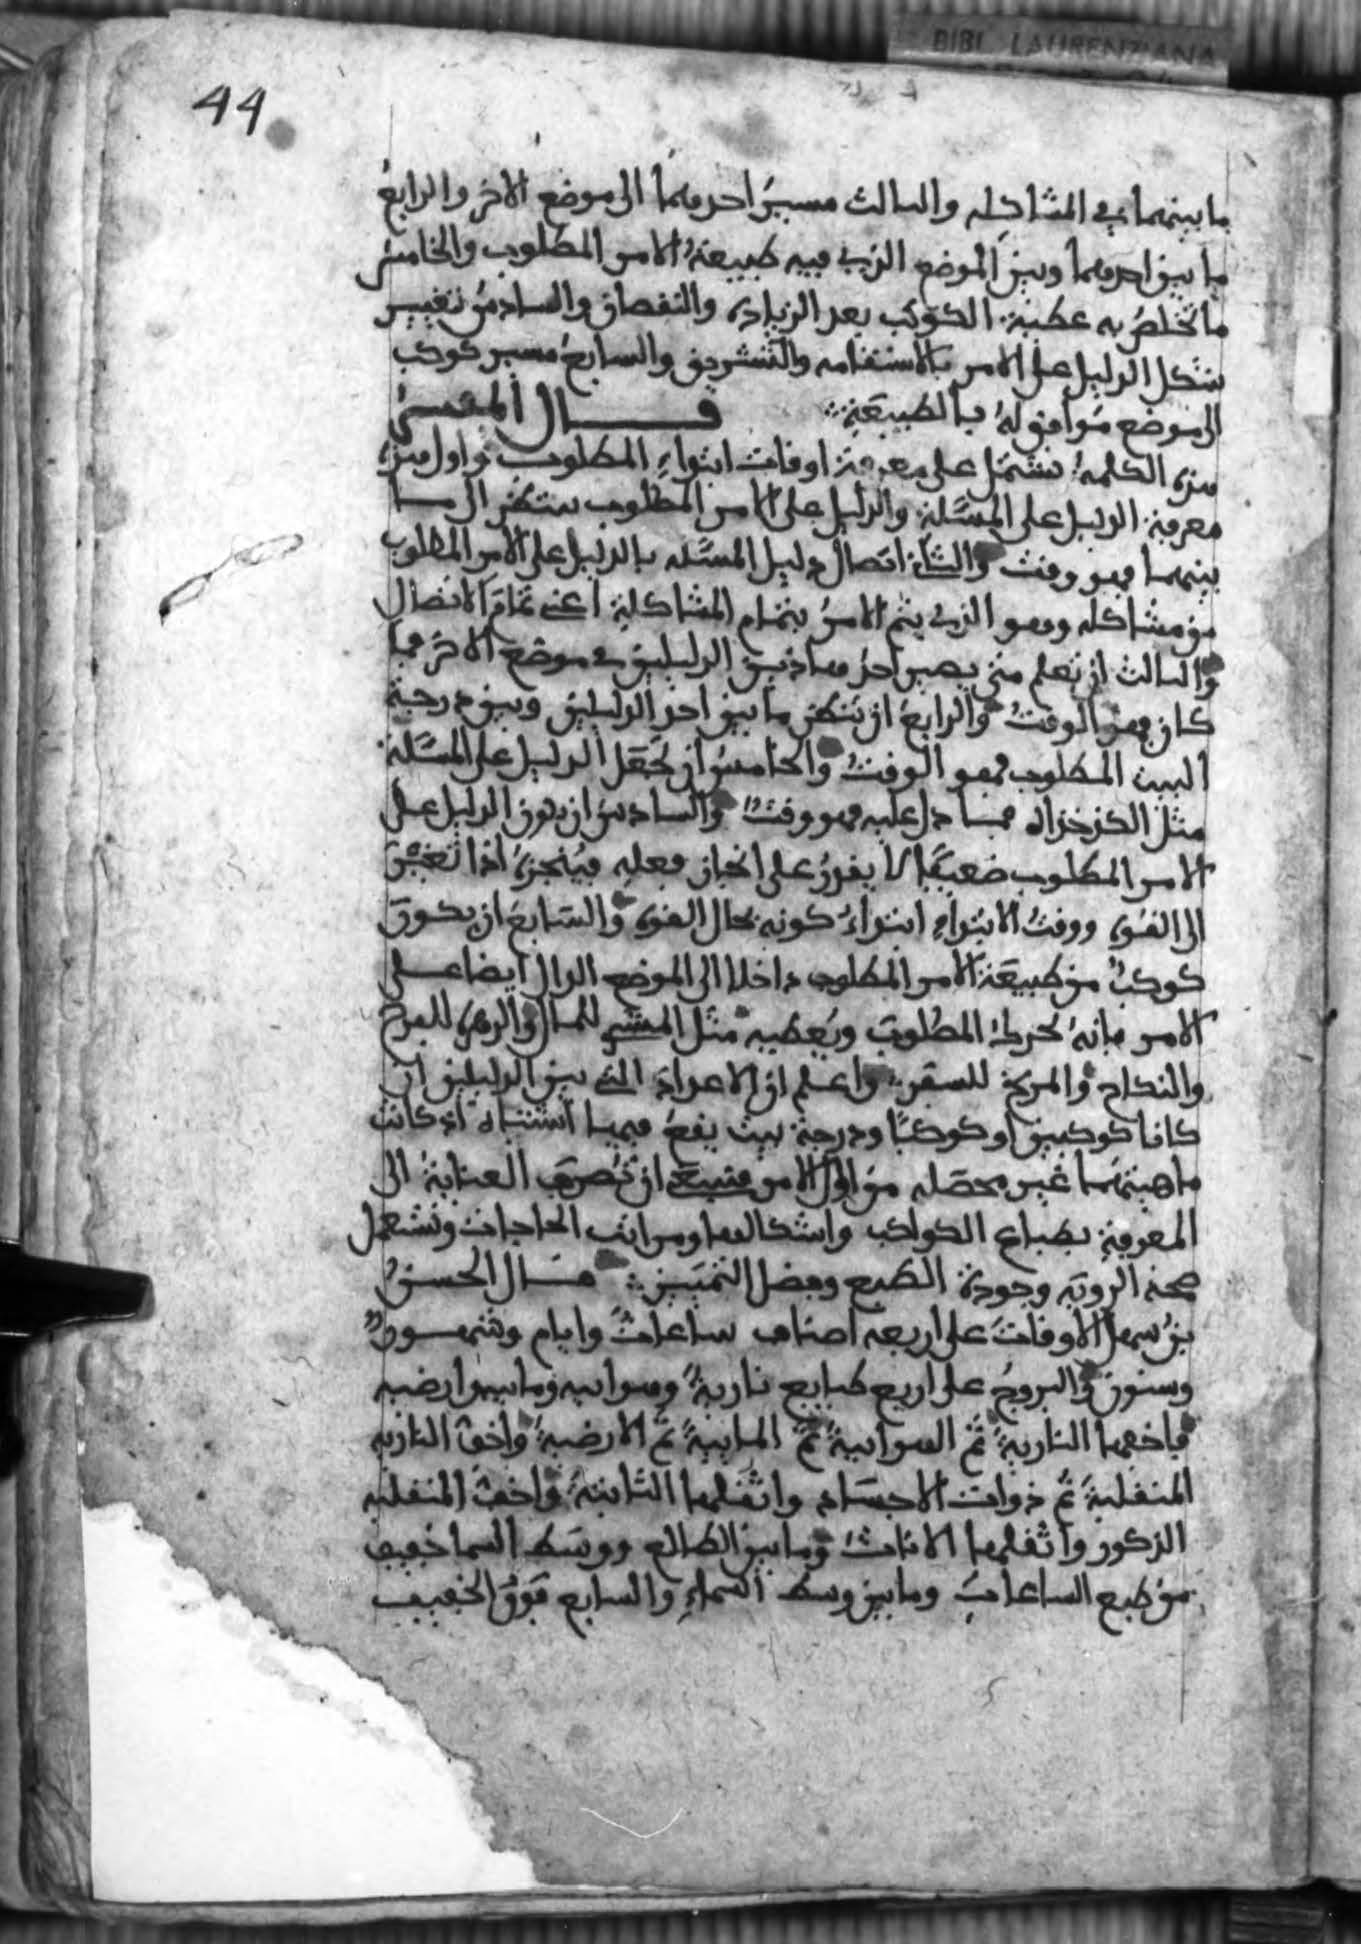 BIBL. LAURENZIANA
44
ما بينهما في المشاكله والثالث مسير احدهما الى موضع الاخر والرابع
ما بين احدهما وبين الموضع الذي فيه طبيعة الامر المطلوب والخامس
ما تخلص به عطية الكوكب بعد الزيادة والنقصان والسادس تغيير
شكل الدليل على الامر بالاستقامه والتشريق والسابع مسير كوكب
الى موضع موافق له بالطبيعة قال المفسر
هذه الكلمة تشتمل على معرفة اوقات ابتداء المطلوب واول هذه
معرفة الدليل على المسئلة والدليل على الامر المطلوب ينتظر الى ما
بينهما فهو وقت والثاني اتصال دليل المسئله بالدليل على الامر المطلوب
من مشاكله وهو الذي يتم الامر بتمام المشاكلة اعني تمام الاتصال
والثالث ان تعلم متى يصير احد هاذين الدليلين في موضع الاخر فما
كان فهو الوقت والرابع ان تنظر ما بين احد الدليلين وبين درجة
البيت المطلوب فهو الوقت والخامس ان تجعل الدليل على المسئلة
مثل الكذخذاه فما دل عليه فهو وقت والسادس ان يكون الدليل على
الامر المطلوب ضعيفا لا يقدر على انجاز فعله فينجزه اذا تغير
الى القوة ووقت الابتداء ابتداء كونه بحال القوة والسابع ان يكون
كوكب من طبيعة الامر المطلوب داخلا الى الموضع الدال ايضا على
الامر فانه يحرك المطلوب ويعطيه مثل المشتري للمال والزهرة للفرح
والنكاح والمريخ للسفر واعلم ان الاعداد التي بين الدليلين ان
كانا كوكبين او كوكبا ودرجة بيت يقع فيها اشتباه اذ كانت
ماهيتهما غير محصله من اول الامر فينبغي ان تصرف العناية الى
المعرفة بطباع الكواكب واشكالها ومراتب الحاجات وتستعمل
صحة الروية وجودة الطبع وفضل التمييز قال الحسن
بن سهل الاوقات على اربعه اصناف ساعات وايام وشهور
وسنون والبروج على اربع طبايع نارية وهوائيه ومائيه وارضيه
فاخفها النارية ثم الهوائية ثم المائية ثم الارضية واخف الناريه
المنقلبة ثم ذوات الاجساد واثقلها الثابتة واخف المنقلبه
الذكور واثقلها الاناث وما بين الطالع ووسط السما خفيف
من طبع الساعات وما بين وسط السماء والسابع فوق الخفيف